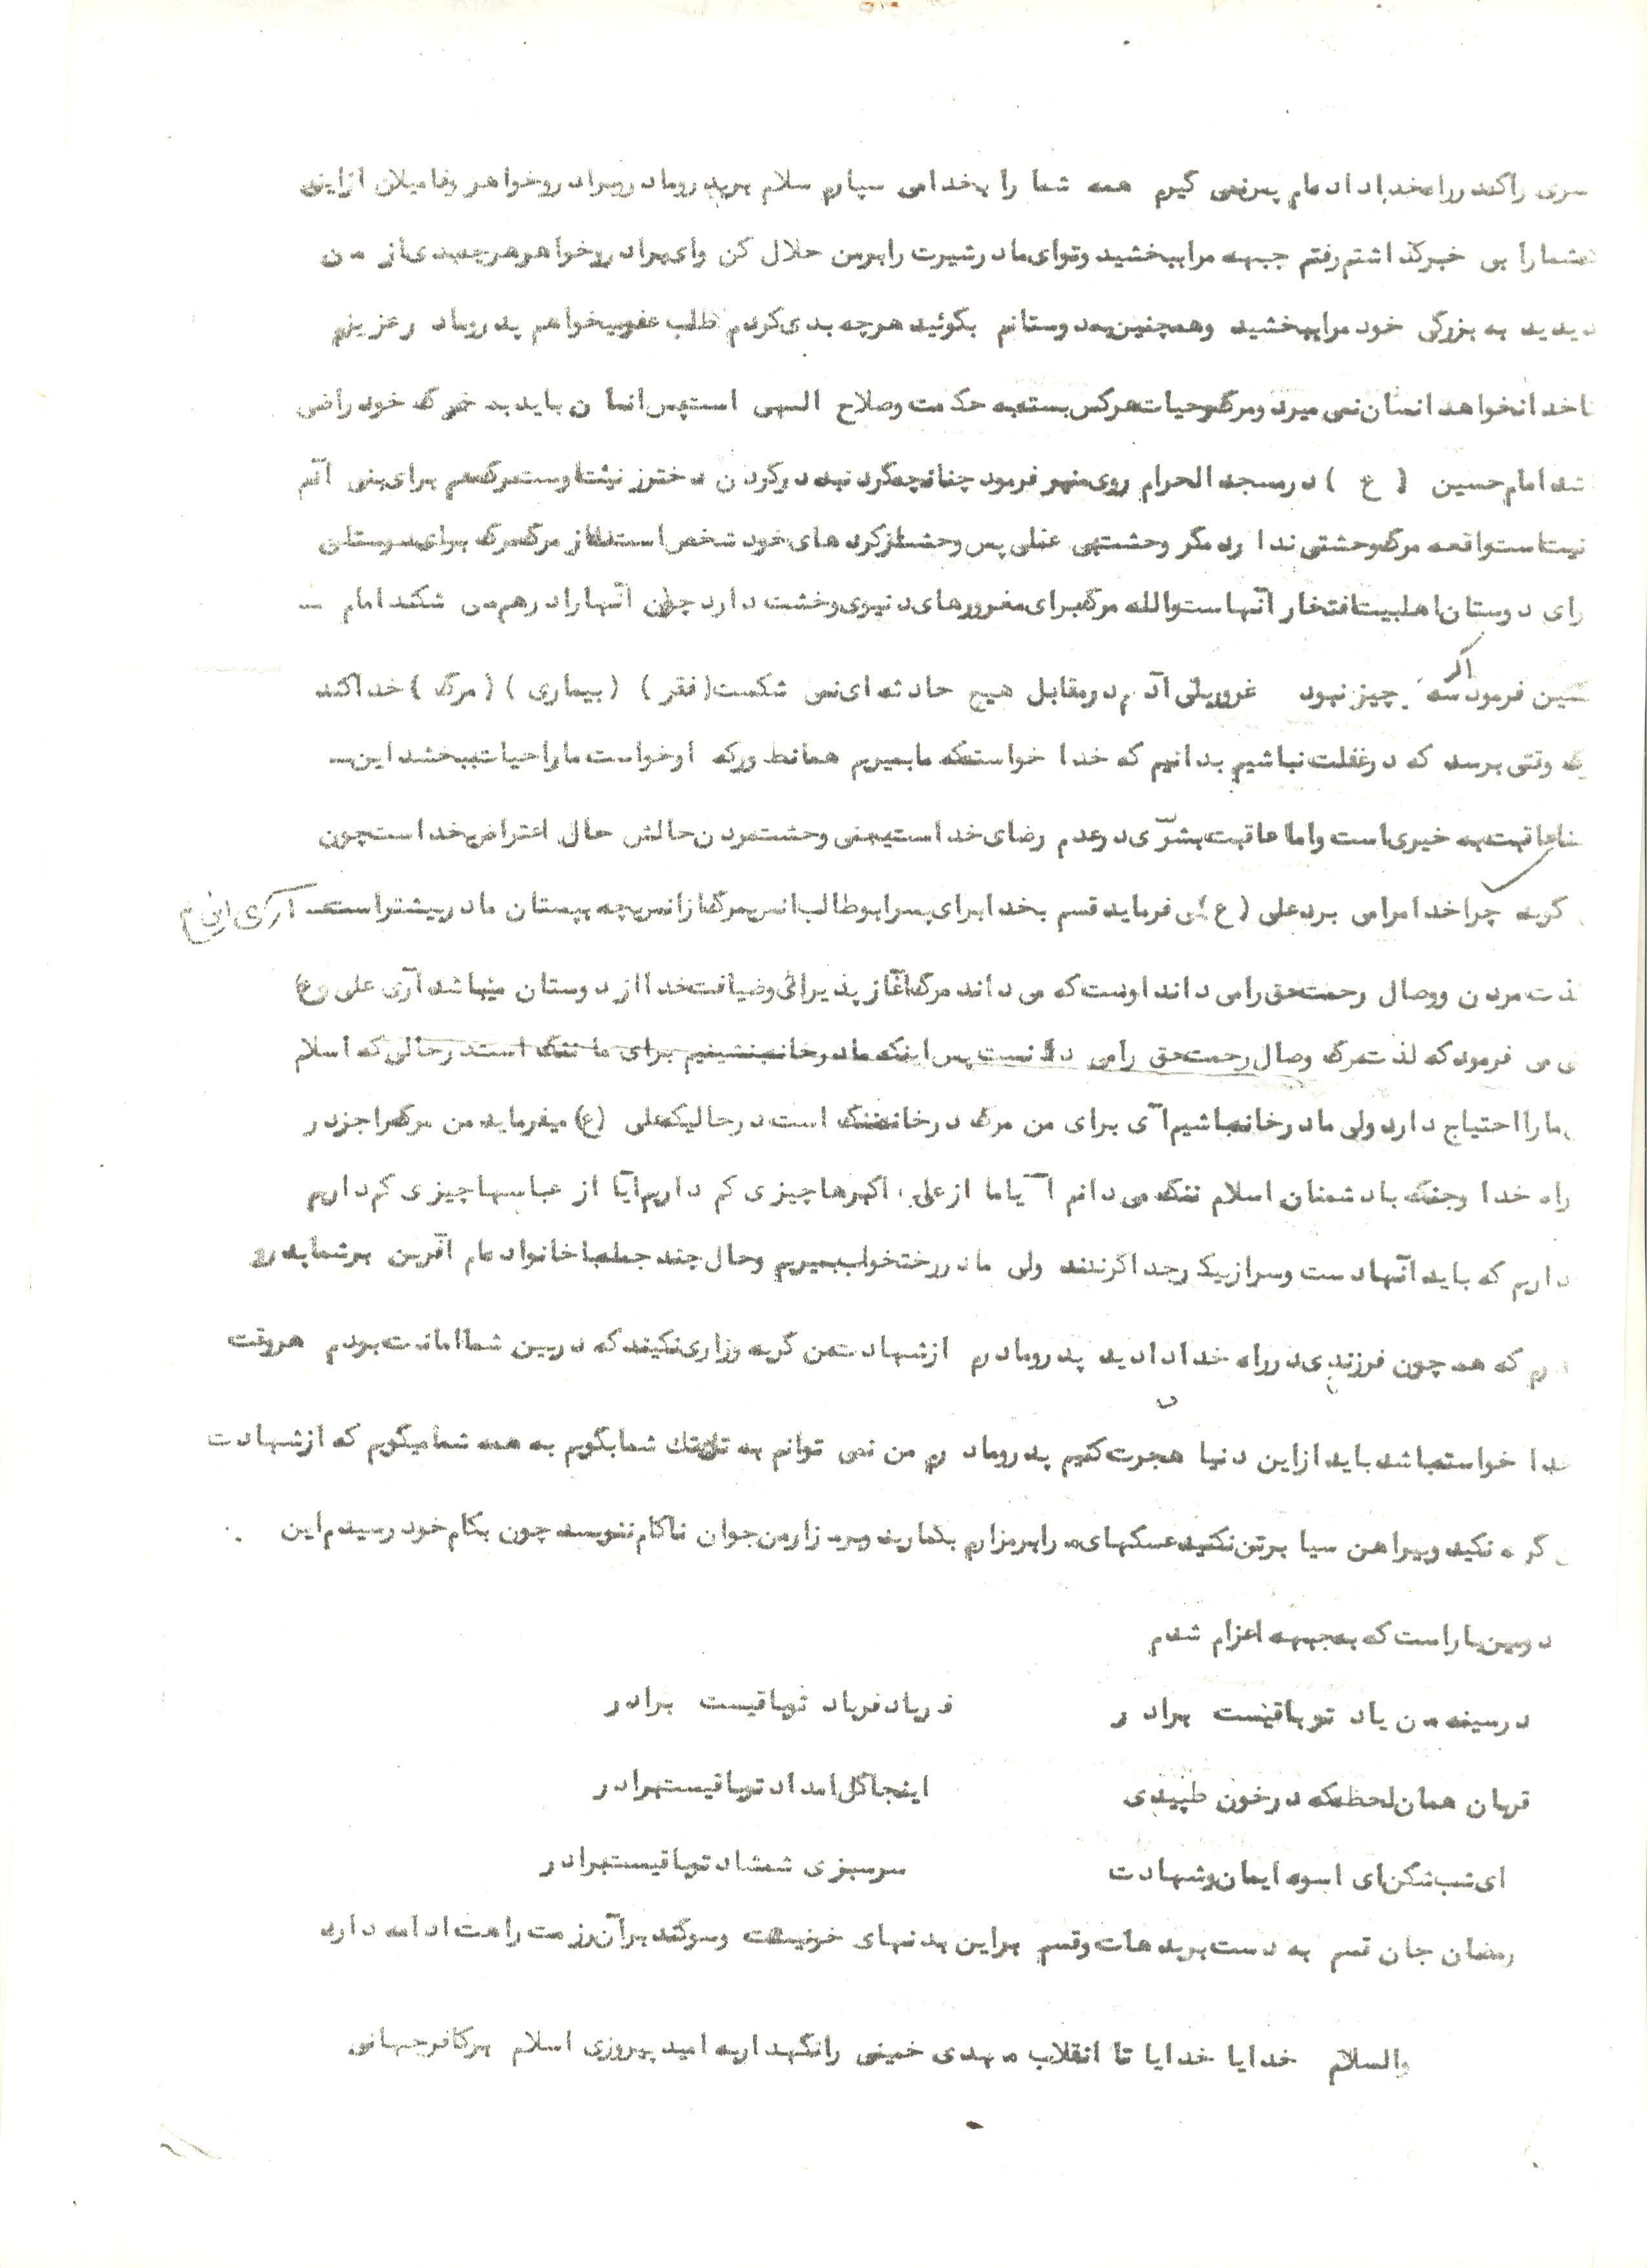 سری را که در راه خدا داده‌ام پس نمی گیرم همه شما را به خدا می سپارم سلام بر پدر و مادر و برادر و خواهر و فامیلان از اینی
شما را بی خبر گذاشتم رفتم جبهه مرا ببخشید و تو ای مادر شیرت را بر من حلال کن و ای برادر و خواهر هر چه بدی از من
دیدید به بزرگی خود مرا ببخشید و همچنین به دوستانم بگوئید هر چه بدی کردم طلب عفو میخواهم پدر و مادر عزیزم
تا خدا نخواهد انسان نمی میرد و مرگ و حیات هر کس بسته به حکمت و صلاح الهی است پس انسان باید به مرگ خود راضی
شد امام حسین (ع) در مسجد الحرام روی منبر فرمود چنانچه گردنبند در گردن دختر زینت اوست مرگ هم برای بنی آدم
زینت است واقعه مرگ وحشتی ندارد مگر وحشت بی عقلی پس وحشت از کرده های خود شخص است نه از مرگ مرگ برای دوستان
رای دوستان اهلبیت افتخار آنهاست والله مرگ برای مغرورهای دنیوی وحشت دارد چون آنها را درهم می شکند امام —
حسین فرمود اگر سه چیز نبود غرور بنی آدم در مقابل هیچ حادثه ای نمی شکست (فقر) (بیماری) (مرگ) خدا کند
یک وقتی برسد که در غفلت نباشیم بدانیم که خدا خواسته که ما بمیریم همانطور که او خواست ما را حیات ببخشد این —
عاقبت به خیری است و اما عاقبت بشرّی در عدم رضای خداست یعنی وحشت مردن حالش حال اعتراض بخداست چون
گریه چرا خدا مرا می برد علی (ع) می فرماید قسم بخدا برای پسر ابوطالب انس به مرگ از انس بچه به پستان مادر بیشتر است آری
لذت مردن و وصال رحمت حق را می داند اوست که می داند مرگ آغاز پذیرائی و ضیافت خدا از دوستان میباشد آری علی (ع)
می فرمود که لذت مرگ وصال رحمت حق را می دانست پس اینکه ما در خانه بنشینیم برای ما ننگ است در حالی که اسلام
ما را احتیاج دارد ولی ما در خانه باشیم آی برای من مرگ در خانه ننگ است در حالیکه علی (ع) میفرماید من مرگ را جز در
راه خدا و جنگ با دشمنان اسلام ننگ می دانم آیا ما از علی اکبرها چیزی کم داریم آیا از عباسها چیزی کم داریم
داریم که باید آنها دست و سر از پیکر جدا کردند ولی ما در رختخواب بمیریم و حال چند جمله با خانواده‌ام آفرین بر شما پدر و
درم که همچون فرزندی در راه خدا دادید پدر و مادرم از شهادت من گریه و زاری نکنید که در بین شما امانت بودم هر وقت
خدا خواسته باشد باید از این دنیا هجرت کنیم پدر و مادرم من نمی توانم به تک تک شما بگویم به همه شما میگویم که از شهادت
گریه نکید و پیراهن سیا بر تن نکنید عسکهای مرا بر مزارم بگذارید و بر مزار من جوان ناکام ننویسد چون بکام خود رسیدم این
دومین بار است که به جبهه اعزام شدم
در سینه من یاد تو باقیست برادر فریاد فریاد تو باقیست برادر
قربان همان لحظه که در خون طپیدی اینجا گل امداد تو باقیست برادر
ای شب شکن ای اسوه ایمان و شهادت سرسبزی شمشاد تو باقیست برادر
رمضان جان قسم به دست بریده‌ات و قسم بر این بدنهای خونینت و سوگند بر آن رزمت راهت ادامه دارد
والسلام خدایا خدایا تا انقلاب مهدی خمینی را نگهدار به امید پیروزی اسلام بر کافر جهانی